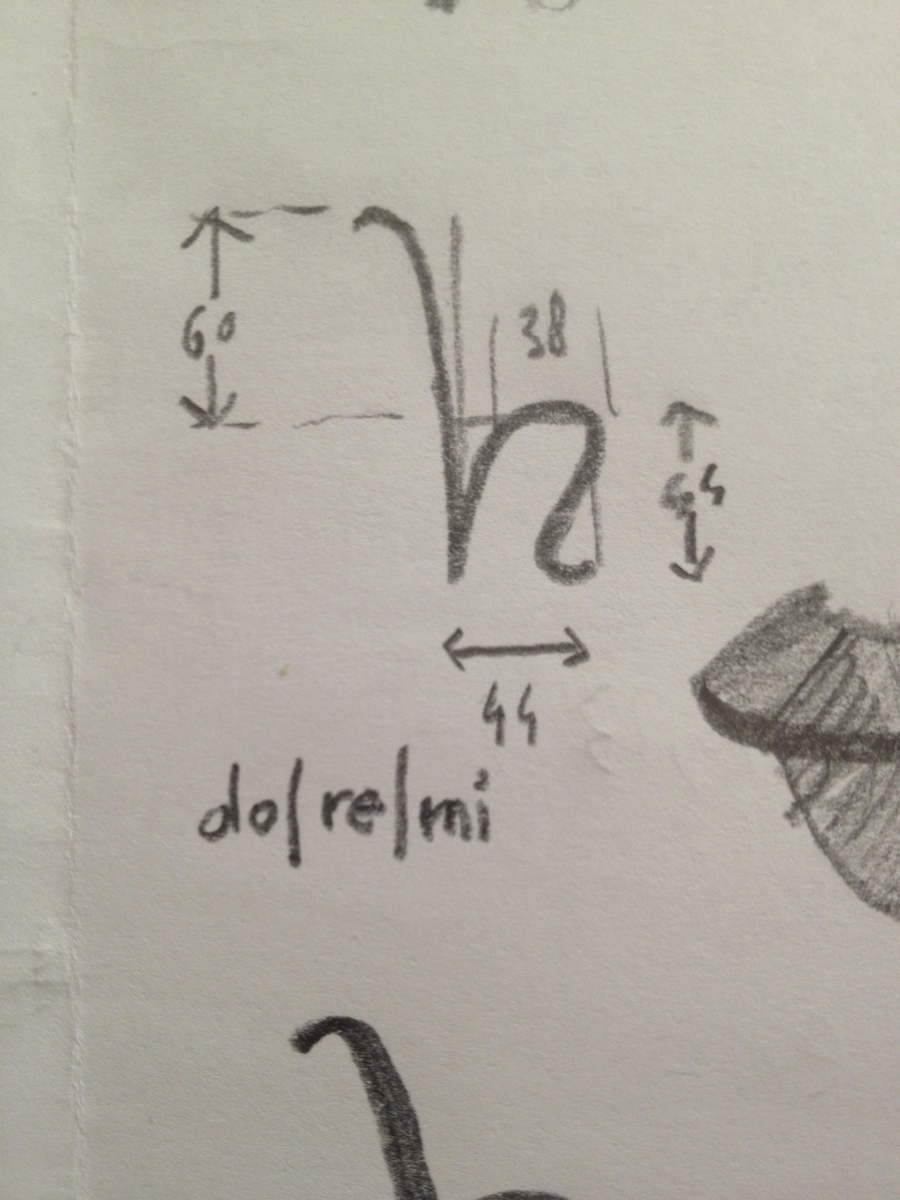 60
38
44
44
do/re/mi